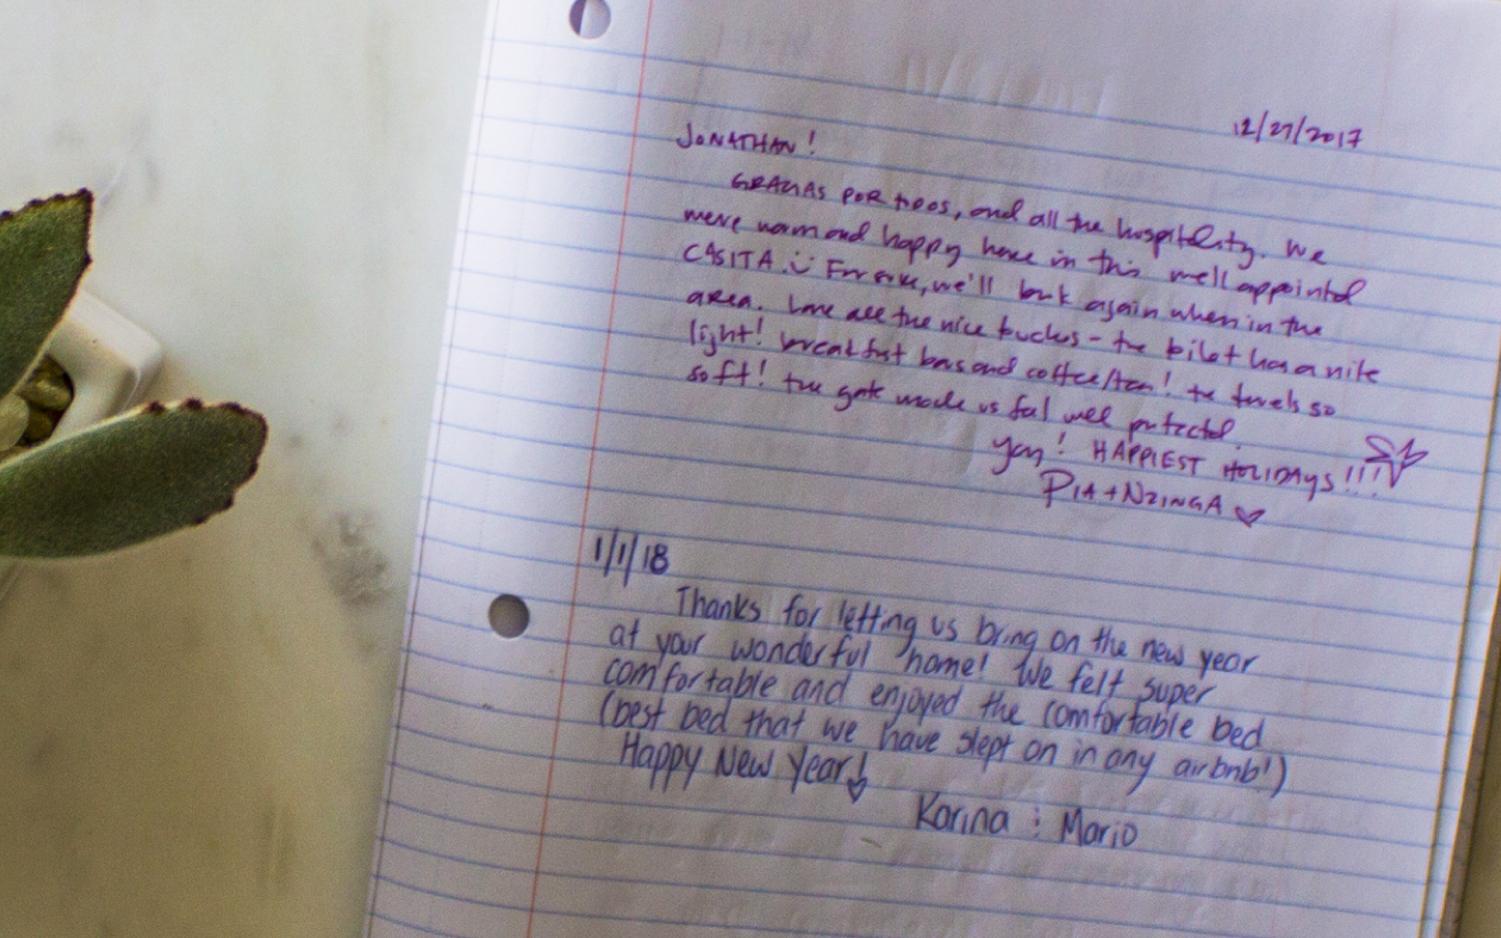 12/27/2017
JONATHAN!
GRACIAS POR TODOS, and all the hospitality. We
were warm and happy here in this well appointed
CASITA. For sure, we'll book again when in the
area. Love all the nice touches - the toilet has a nite
light! breakfast bars and coffee/tea! the towels so
soft! the gate made us feel well protected.
Yay! HAPPIEST HOLIDAYS!!!
PIA + NZINGA
1/1/18
Thanks for letting us bring on the new year
at your wonderful home! We felt super
comfortable and enjoyed the comfortable bed
(best bed that we have slept on in any airbnb!)
Happy New Year!
Karina : Mario